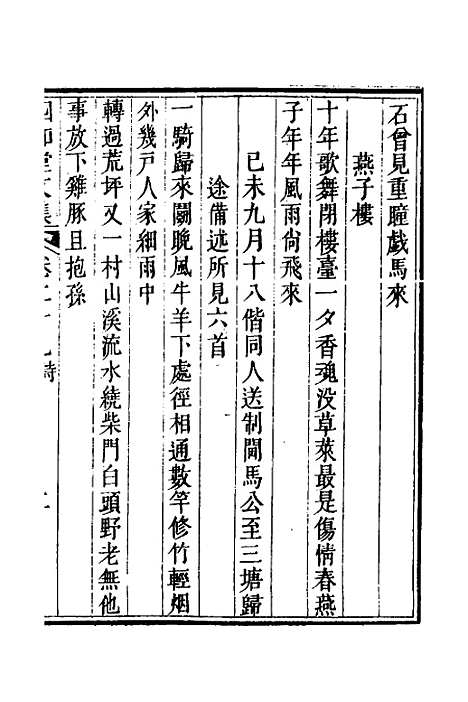 石曾見重瞳戲馬來
燕子樓
十年歌舞閉樓臺一夕香魂没草萊最是傷情春燕
子年年風雨尙飛來
己未九月十八偕同人送制閫馬公至三塘歸
途備述所見六首
一騎歸來鬭晚風牛羊下處徑相通數竿修竹輕烟
外幾戸人家細雨中
轉過荒坪又一村山溪流水繞柴門白頭野老無他
事放下雞豚且抱孫
堂文集 卷二十九 詩